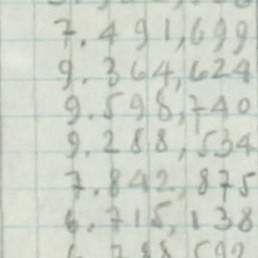 7.491,699
9.364,624
9.598,740
9.288,534
7.842,875
6.715,138